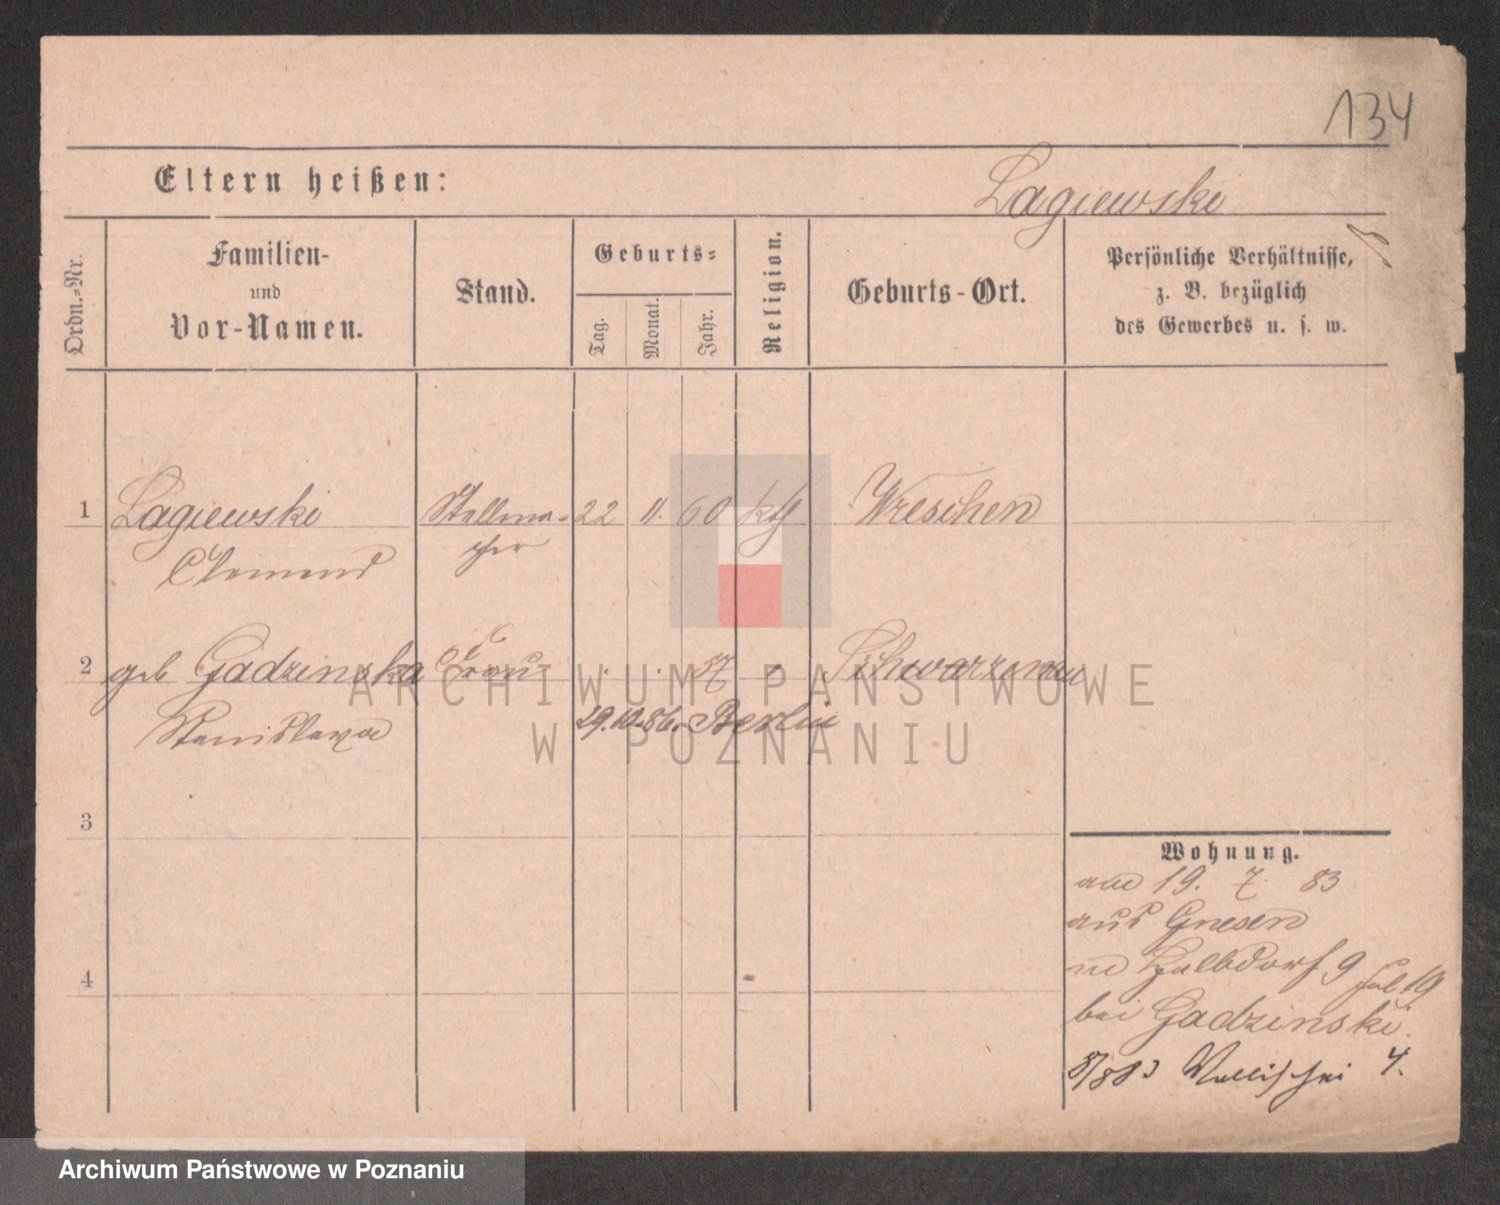 134
Eltern heißen: Lagiewski
Ordn.-Nr.
Familien-
und
Vor-Namen.
Stand.
Geburts-
Tag.
Monat.
Jahr.
Religion.
Geburts-Ort.
Persönliche Verhältnisse,
z. B. bezüglich
des Gewerbes u. s. w.
1 Lagiewski Stellma- 22 11. 60 kth Wreschen
Clemens cher
2 geb Gadzinska Frau . . 57 Schwarzenau
Stanislawa 29.12.86. Berlin
3
4
Wohnung.
am 19. 7. 83
aus Gnesen
in Halbdorf 9
bei Gadzinski.
8/883 Wallischei 4.
ARCHIWUM PAŃSTWOWE
W POZNANIU
Archiwum Państwowe w Poznaniu